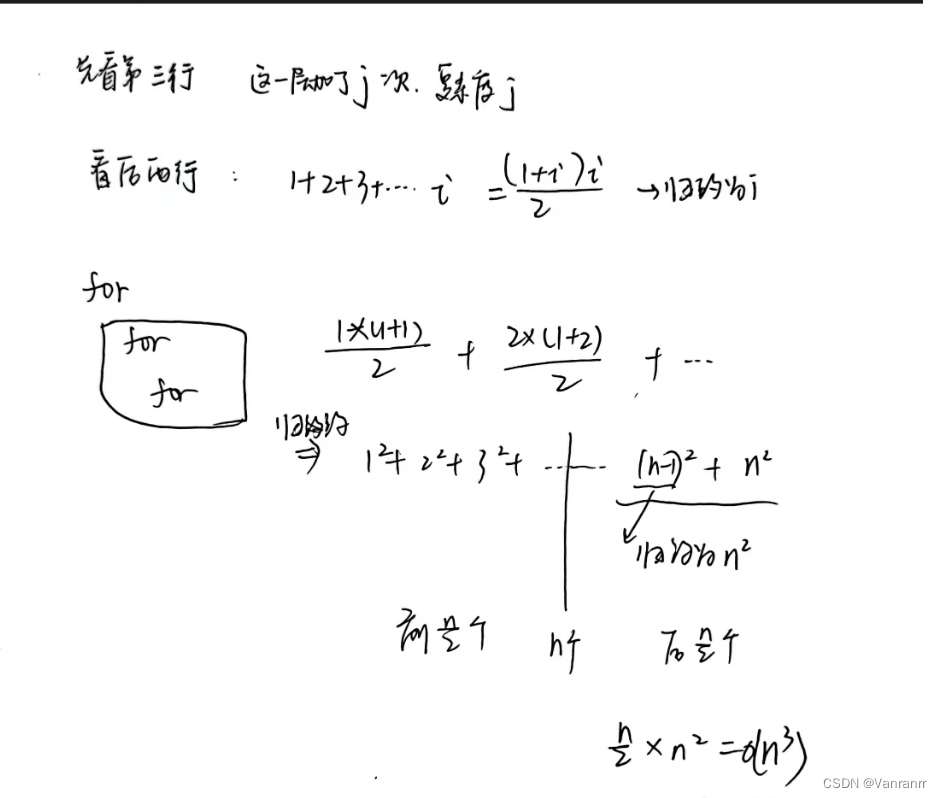 先看第三行 这一层加了j次. 复杂度j
看后两行: 1+2+3+···· i = (1+i)i/2 →归约为i
for
for
for
1×(1+1)/2 + 2×(1+2)/2 + ···
归约约
⇒ 1²+2²+3²+ ······ (n-1)² + n²
归约为n²
前n/2个 n个 后n/2个
n/2 × n² = O(n³)
CSDN @Vanranrr